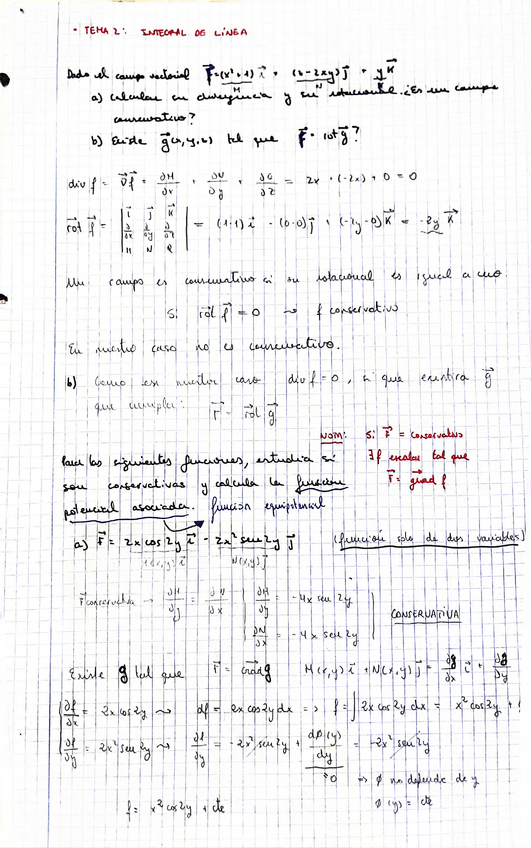 · TEMA 2: INTEGRAL DE LÍNEA
Dado el campo vectorial F = (x²+1) i + (z-2xy) j + y K
M N
a) Calcular su divergencia y su rotacional. ¿Es un campo
conservativo?
b) Existe g(x,y,z) tal que F = rot g?
div f = ∇f = ∂M/∂x + ∂N/∂y + ∂Q/∂z = 2x + (-2x) + 0 = 0
rot f = | i j K ; ∂/∂x ∂/∂y ∂/∂z ; M N Q | = (1-1) i - (0-0) j + (-2y-0) K = -2y K
Un campo es conservativo si su rotacional es igual a cero.
Si rot f = 0 → f conservativo
En nuestro caso no es conservativo.
b) Como en nuestro caso div f = 0, si que existira g
que cumpla: F = rot g
NOM: Si F = conservativo
∃ f escalar tal que
F = grad f
Para las siguientes funciones, estudia si
son conservativas y calcula la función
potencial asociada. función equipotencial
a) F = 2x cos 2y i - 2x² sen 2y j (función solo de dos variables)
M(x,y) i N(x,y) j
F conservativa → ∂M/∂y = ∂N/∂x | ∂M/∂y = -4x sen 2y
∂N/∂x = -4x sen 2y | CONSERVATIVA
Existe g tal que F = grad g M(x,y) i + N(x,y) j = ∂g/∂x i + ∂g/∂y
∂f/∂x = 2x cos 2y → df = 2x cos 2y dx => f = ∫ 2x cos 2y dx = x² cos 2y +
∂f/∂y = 2x² sen 2y → ∂f/∂y = -2x² sen 2y + dØ(y)/dy = -2x² sen 2y
=0 => Ø no depende de y
f = x² cos 2y + cte Ø(y) = cte